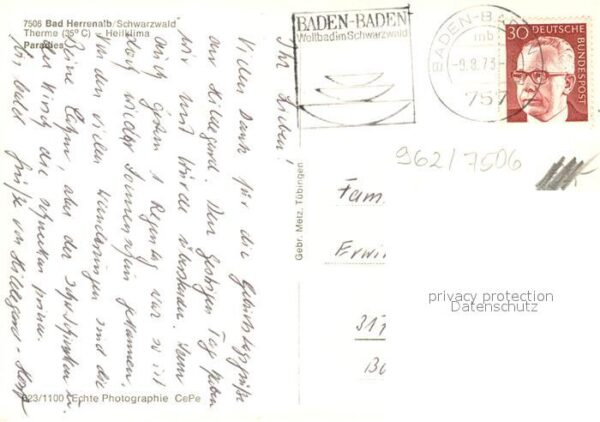 7506 Bad Herrenalb/Schwarzwald
Therme (35° C) – Heilklima
Paradies
BADEN-BADEN
Weltbad im Schwarzwald
BADEN-BAD
mb
-9.8.73-
757
30 DEUTSCHE
BUNDESPOST
962/7506
Ihr Lieben!
Vielen Dank für die Geburtstagsgrüße
von Hildegard. Den gestrigen Tag haben
wir mit Würde überstanden. Wenn
auch gestern 1 Regentag war so ist
doch wieder Sonnenschein gekommen.
Von den vielen Wanderungen sind die
Beine aber der
den Kirsch die
Bis bald Grüße von Hildegard
Gebr. Metz, Tübingen
Fam.
Erwi
31
privacy protection
Datenschutz
623/1100 Echte Photographie CePe